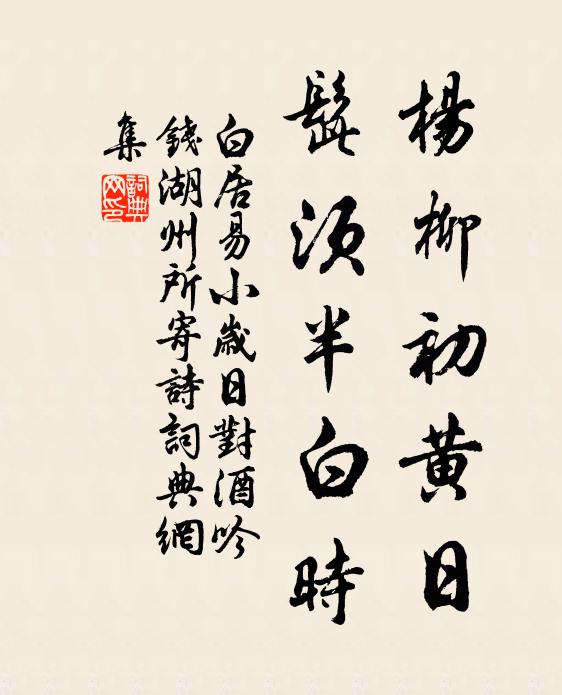 楊柳初黃日
髭須半白時
白居易小歲日對酒吟
錢湖州所寄詩詞典網
集
詞典
网印